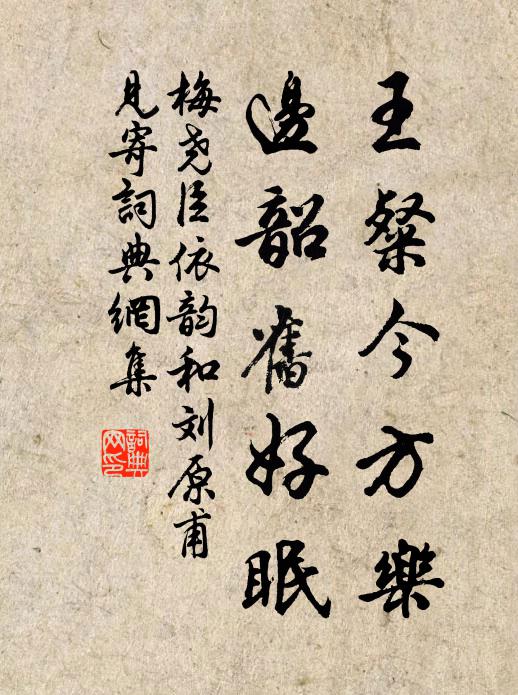 王粲今方樂
邊韶舊好眠
梅尧臣依韵和刘原甫
見寄詞典網集
詞典
网印